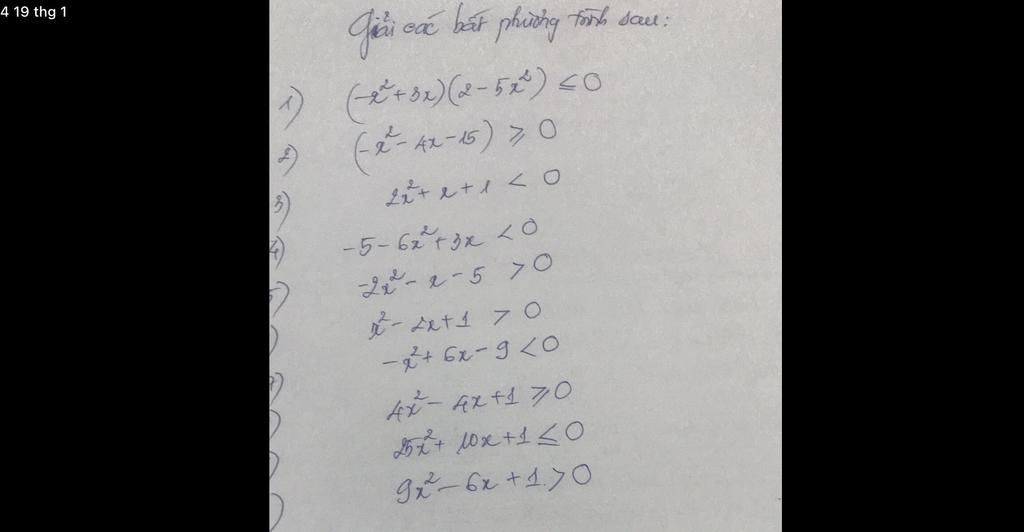 4 19 thg 1
Giải các bất phương trình sau:
1) (-x²+3x)(2-5x²) ≤ 0
2) (-x²-4x-15) ≥ 0
3) 2x²+x+1 < 0
4) -5-6x²+3x < 0
5) -2x²-x-5 > 0
) x²-2x+1 > 0
7) -x²+6x-9 < 0
) 4x²-4x+1 ≥ 0
) 25x²+10x+1 ≤ 0
) 9x²-6x+1 > 0